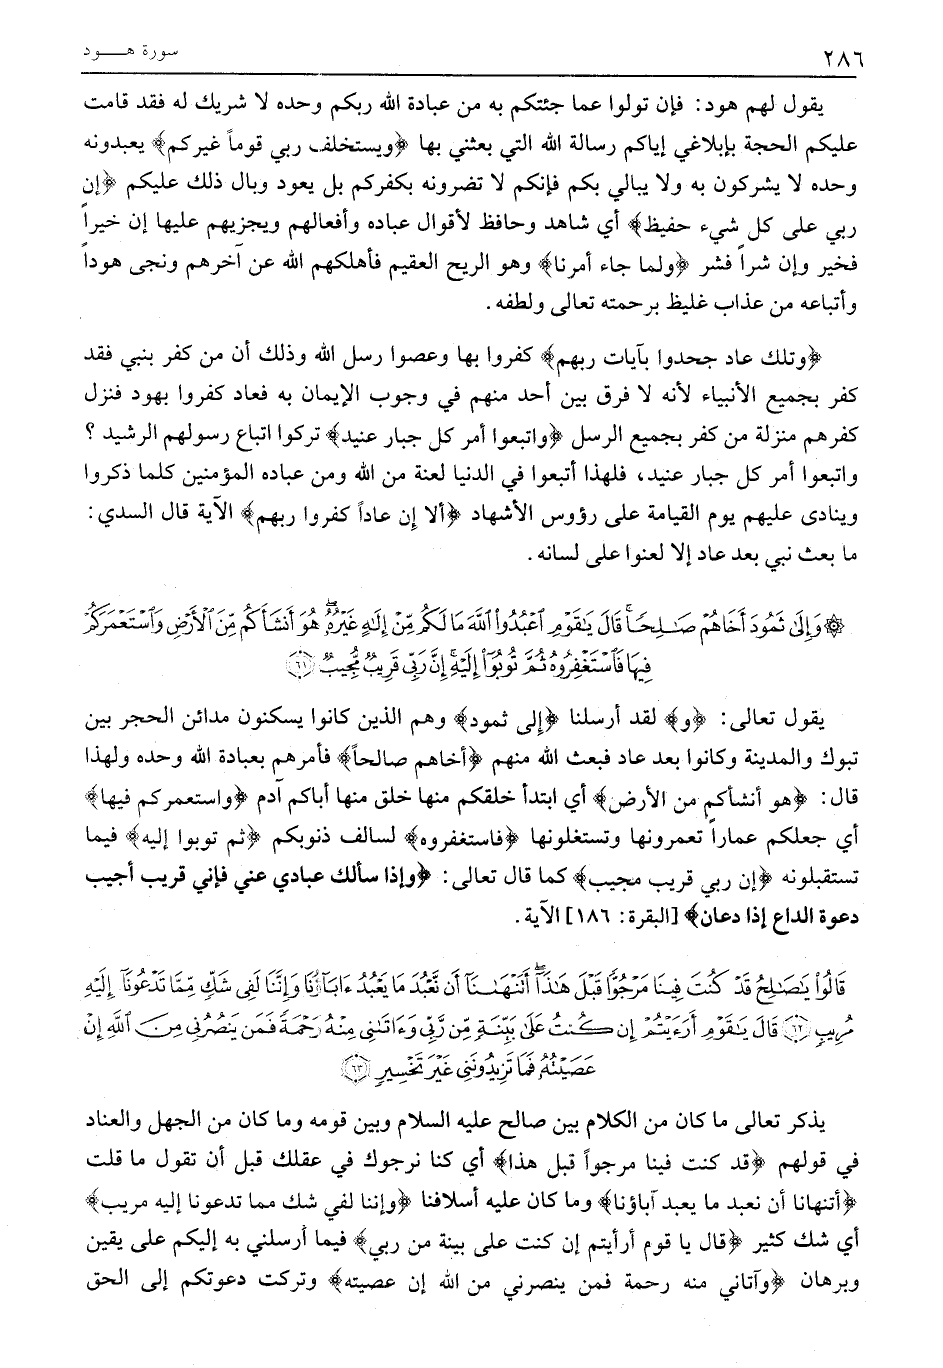 ٢٨٦
سورة هـــود
يقول لهم هود: فإن تولوا عما جئتكم به من عبادة الله ربكم وحده لا شريك له فقد قامت
عليكم الحجة بإبلاغي إياكم رسالة الله التي بعثني بها ﴿ويستخلف ربي قوماً غيركم﴾ يعبدونه
وحده لا يشركون به ولا يبالي بكم فإنكم لا تضرونه بكفركم بل يعود وبال ذلك عليكم ﴿إن
ربي على كل شيء حفيظ﴾ أي شاهد وحافظ لأقوال عباده وأفعالهم ويجزيهم عليها إن خيراً
فخير وإن شراً فشر ﴿ولما جاء أمرنا﴾ وهو الريح العقيم فأهلكهم الله عن آخرهم ونجى هوداً
وأتباعه من عذاب غليظ برحمته تعالى ولطفه.
﴿وتلك عاد جحدوا بآيات ربهم﴾ كفروا بها وعصوا رسل الله وذلك أن من كفر بنبي فقد
كفر بجميع الأنبياء لأنه لا فرق بين أحد منهم في وجوب الإيمان به فعاد كفروا بهود فنزل
كفرهم منزلة من كفر بجميع الرسل ﴿واتبعوا أمر كل جبار عنيد﴾ تركوا اتباع رسولهم الرشيد ؟
واتبعوا أمر كل جبار عنيد، فلهذا أتبعوا في الدنيا لعنة من الله ومن عباده المؤمنين كلما ذكروا
وينادى عليهم يوم القيامة على رؤوس الأشهاد ﴿ألا إن عاداً كفروا ربهم﴾ الآية قال السدي:
ما بعث نبي بعد عاد إلا لعنوا على لسانه.
۞ وَإِلَىٰ ثَمُودَ أَخَاهُمْ صَـٰلِحًاۚ قَالَ يَـٰقَوْمِ ٱعْبُدُوا۟ ٱللَّهَ مَا لَكُم مِّنْ إِلَـٰهٍ غَيْرُهُۥۖ هُوَ أَنشَأَكُم مِّنَ ٱلْأَرْضِ وَٱسْتَعْمَرَكُمْ
فِيهَا فَٱسْتَغْفِرُوهُ ثُمَّ تُوبُوٓا۟ إِلَيْهِۚ إِنَّ رَبِّى قَرِيبٌ مُّجِيبٌ ﴿٦١﴾
يقول تعالى: ﴿و﴾ لقد أرسلنا ﴿إلى ثمود﴾ وهم الذين كانوا يسكنون مدائن الحجر بين
تبوك والمدينة وكانوا بعد عاد فبعث الله منهم ﴿أخاهم صالحاً﴾ فأمرهم بعبادة الله وحده ولهذا
قال: ﴿هو أنشأكم من الأرض﴾ أي ابتدأ خلقكم منها خلق منها أباكم آدم ﴿واستعمركم فيها﴾
أي جعلكم عماراً تعمرونها وتستغلونها ﴿فاستغفروه﴾ لسالف ذنوبكم ﴿ثم توبوا إليه﴾ فيما
تستقبلونه ﴿إن ربي قريب مجيب﴾ كما قال تعالى: ﴿وإذا سألك عبادي عني فإني قريب أجيب
دعوة الداع إذا دعان﴾ [البقرة: ١٨٦] الآية.
قَالُوا۟ يَـٰصَـٰلِحُ قَدْ كُنتَ فِينَا مَرْجُوًّا قَبْلَ هَـٰذَآۖ أَتَنْهَـٰنَآ أَن نَّعْبُدَ مَا يَعْبُدُ ءَابَآؤُنَا وَإِنَّنَا لَفِى شَكٍّ مِّمَّا تَدْعُونَآ إِلَيْهِ
مُرِيبٍ ﴿٦٢﴾ قَالَ يَـٰقَوْمِ أَرَءَيْتُمْ إِن كُنتُ عَلَىٰ بَيِّنَةٍ مِّن رَّبِّى وَءَاتَىٰنِى مِنْهُ رَحْمَةً فَمَن يَنصُرُنِى مِنَ ٱللَّهِ إِنْ
عَصَيْتُهُۥ فَمَا تَزِيدُونَنِى غَيْرَ تَخْسِيرٍ ﴿٦٣﴾
يذكر تعالى ما كان من الكلام بين صالح عليه السلام وبين قومه وما كان من الجهل والعناد
في قولهم ﴿قد كنت فينا مرجواً قبل هذا﴾ أي كنا نرجوك في عقلك قبل أن تقول ما قلت
﴿أتنهانا أن نعبد ما يعبد آباؤنا﴾ وما كان عليه أسلافنا ﴿وإننا لفي شك مما تدعونا إليه مريب﴾
أي شك كثير ﴿قال يا قوم أرأيتم إن كنت على بينة من ربي﴾ فيما أرسلني به إليكم على يقين
وبرهان ﴿وآتاني منه رحمة فمن ينصرني من الله إن عصيته﴾ وتركت دعوتكم إلى الحق